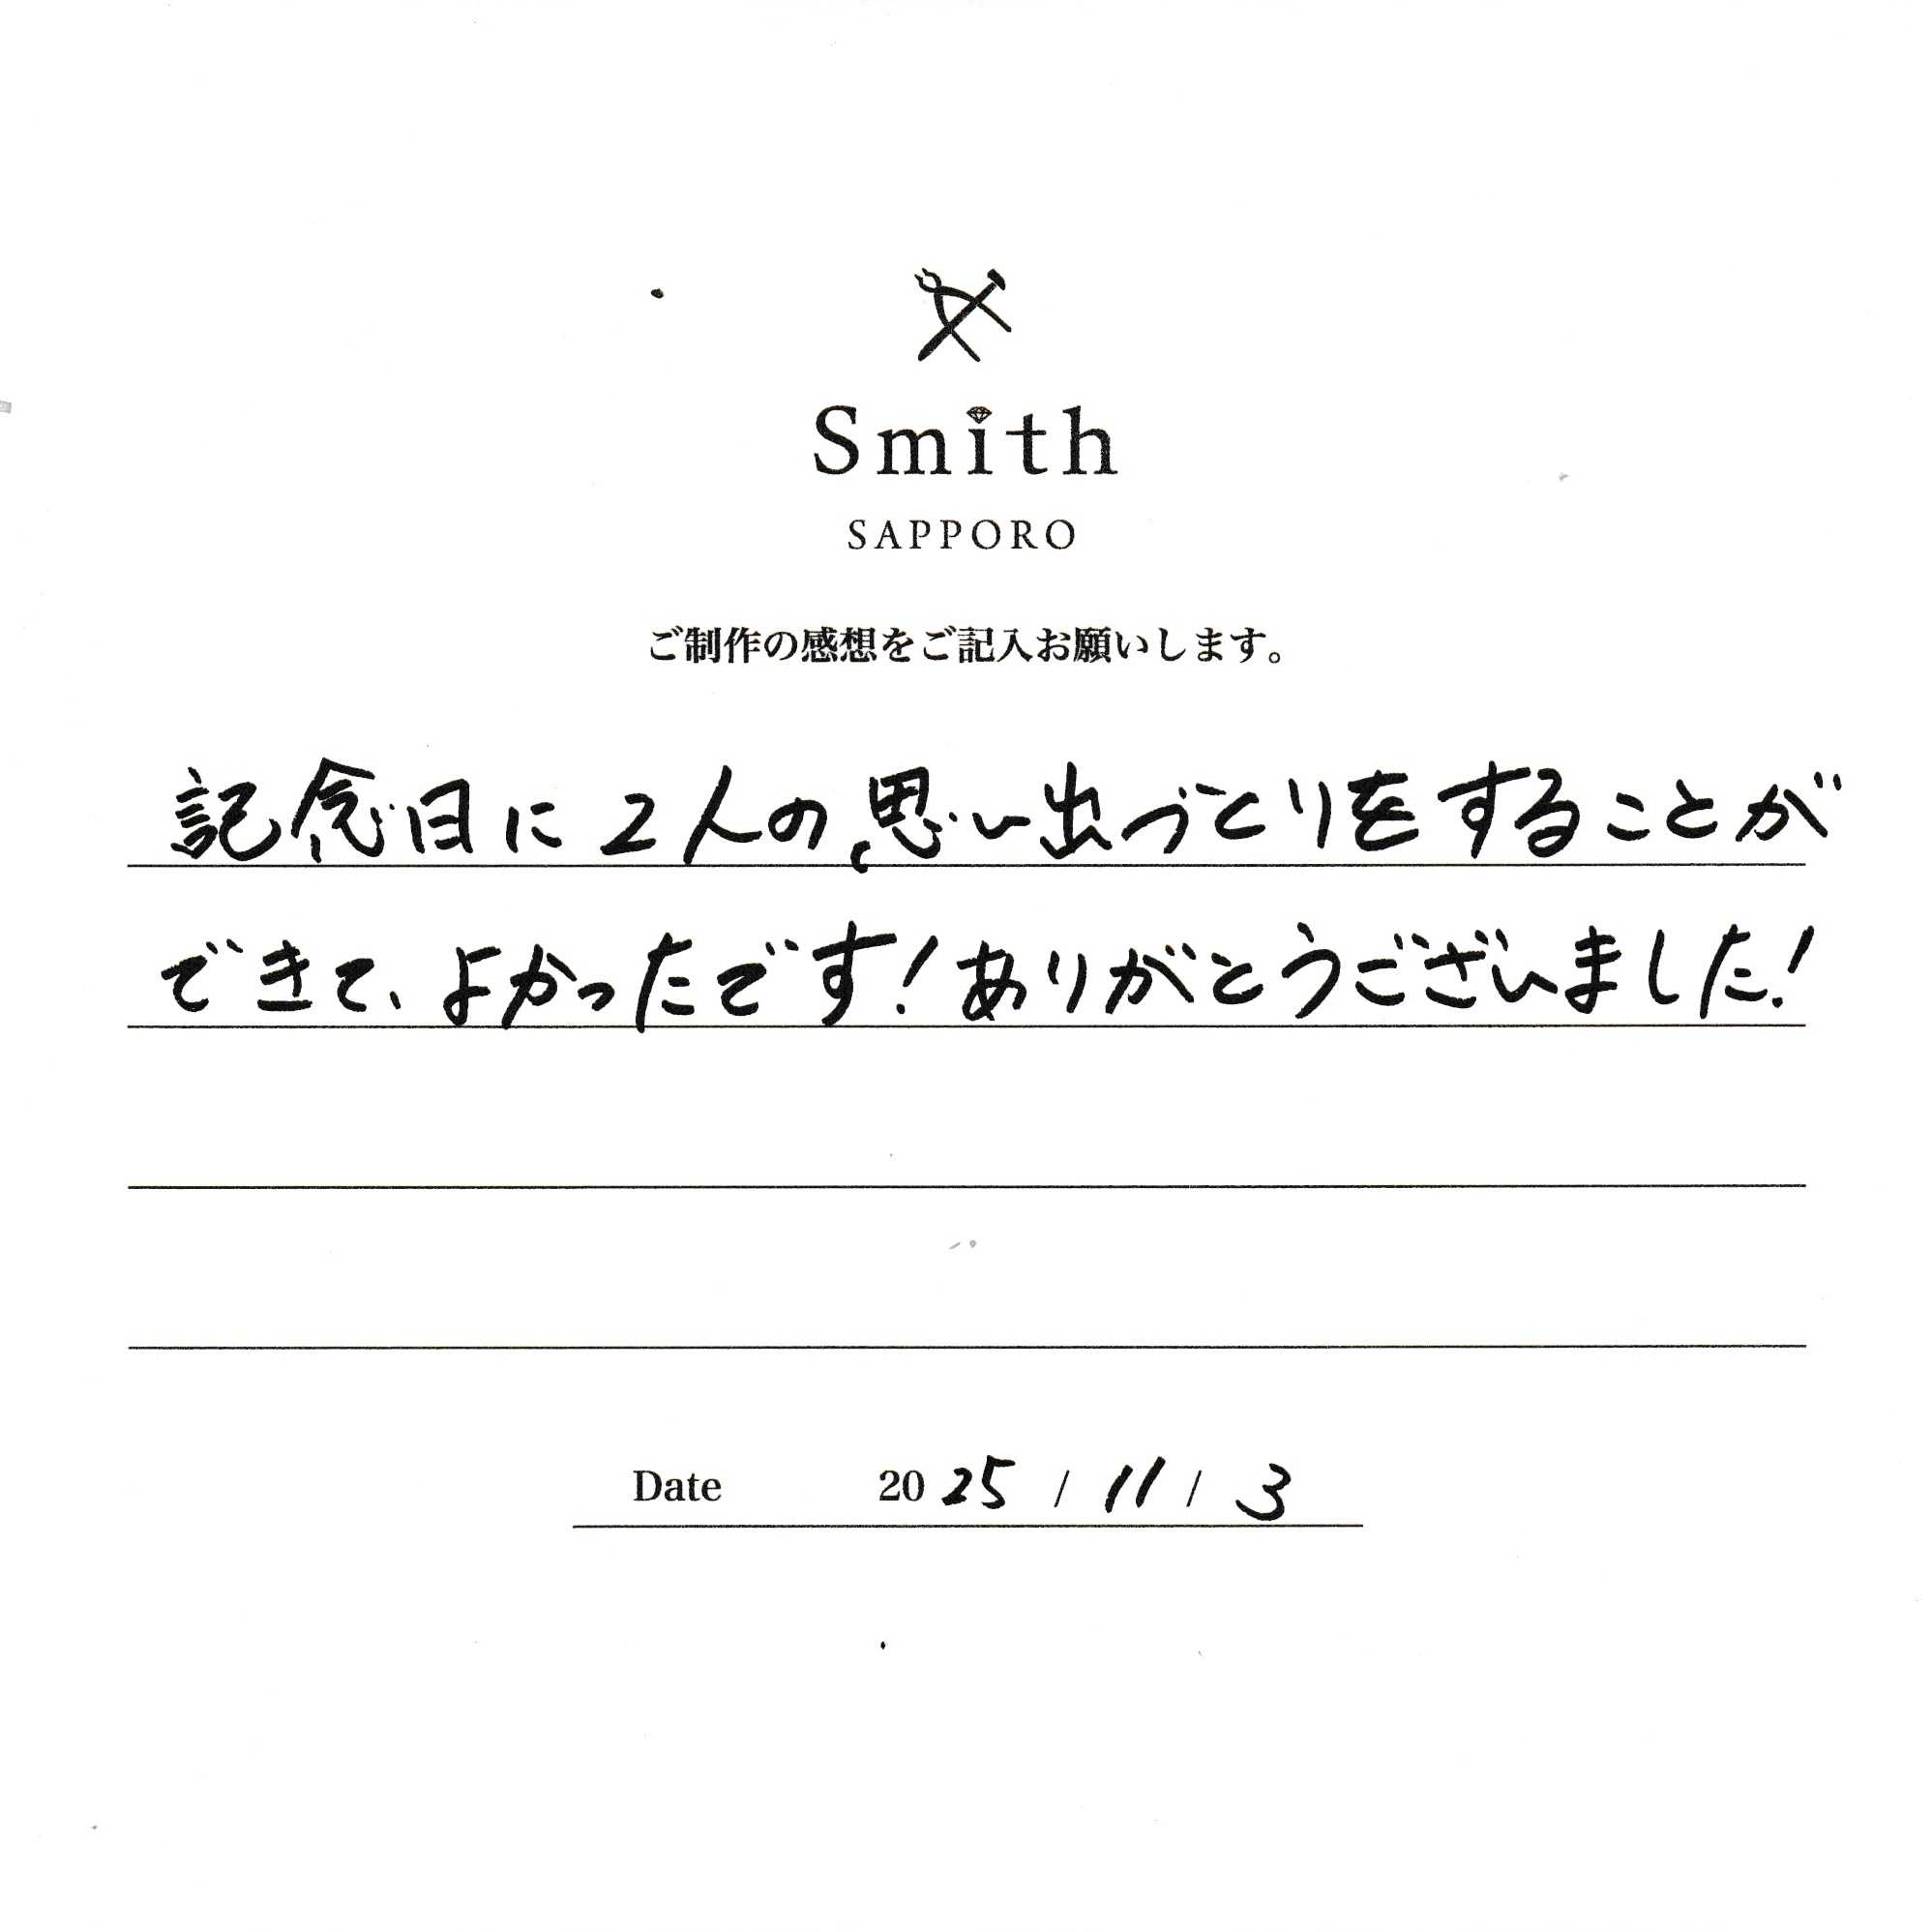 Smith
SAPPORO
ご制作の感想をご記入お願いします。
記念日に2人の思い出づくりをすることが
できて、よかったです!ありがとうございました!
Date 2025 / 11 / 3